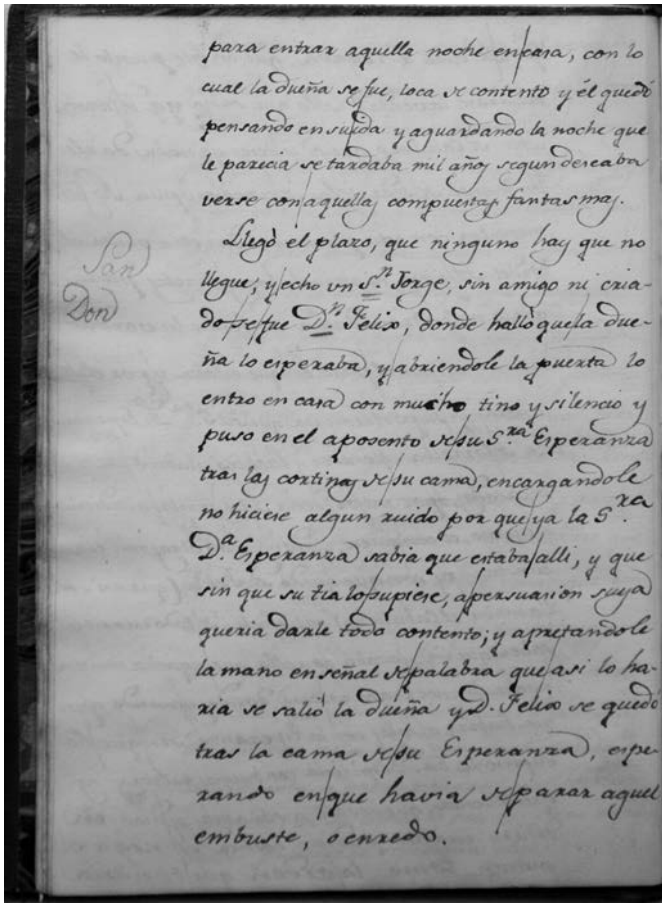 para entrar aquella noche en casa, con lo
cual la dueña se fue, loca de contento y él quedó
pensando en su ida y aguardando la noche que
le parecia se tardaba mil años segun deseaba
verse con aquellas compuestas fantasmas.
Llegò el plazo, que ninguno hay que no
llegue, y echo un S.n Jorge, sin amigo ni cria-
San
do se fue D.n Felix, donde hallò que la due-
Don
ña lo esperaba, y abriendole la puerta lo
entro en casa con mucho tino y silencio y
puso en el aposento de su S.ra Esperanza
tras las cortinas de su cama, encargandole
no hiciese algun ruido por que ya la S.ra
D.a Esperanza sabia que estaba alli, y que
sin que su tia lo supiese, a persuasion suya
queria darle todo contento; y apretandole
la mano en señal de palabra que asi lo ha-
ria se saliò la dueña y D. Felix se quedò
tras la cama de su Esperanza, espe-
rando en que havia de parar aquel
embuste, o enredo.